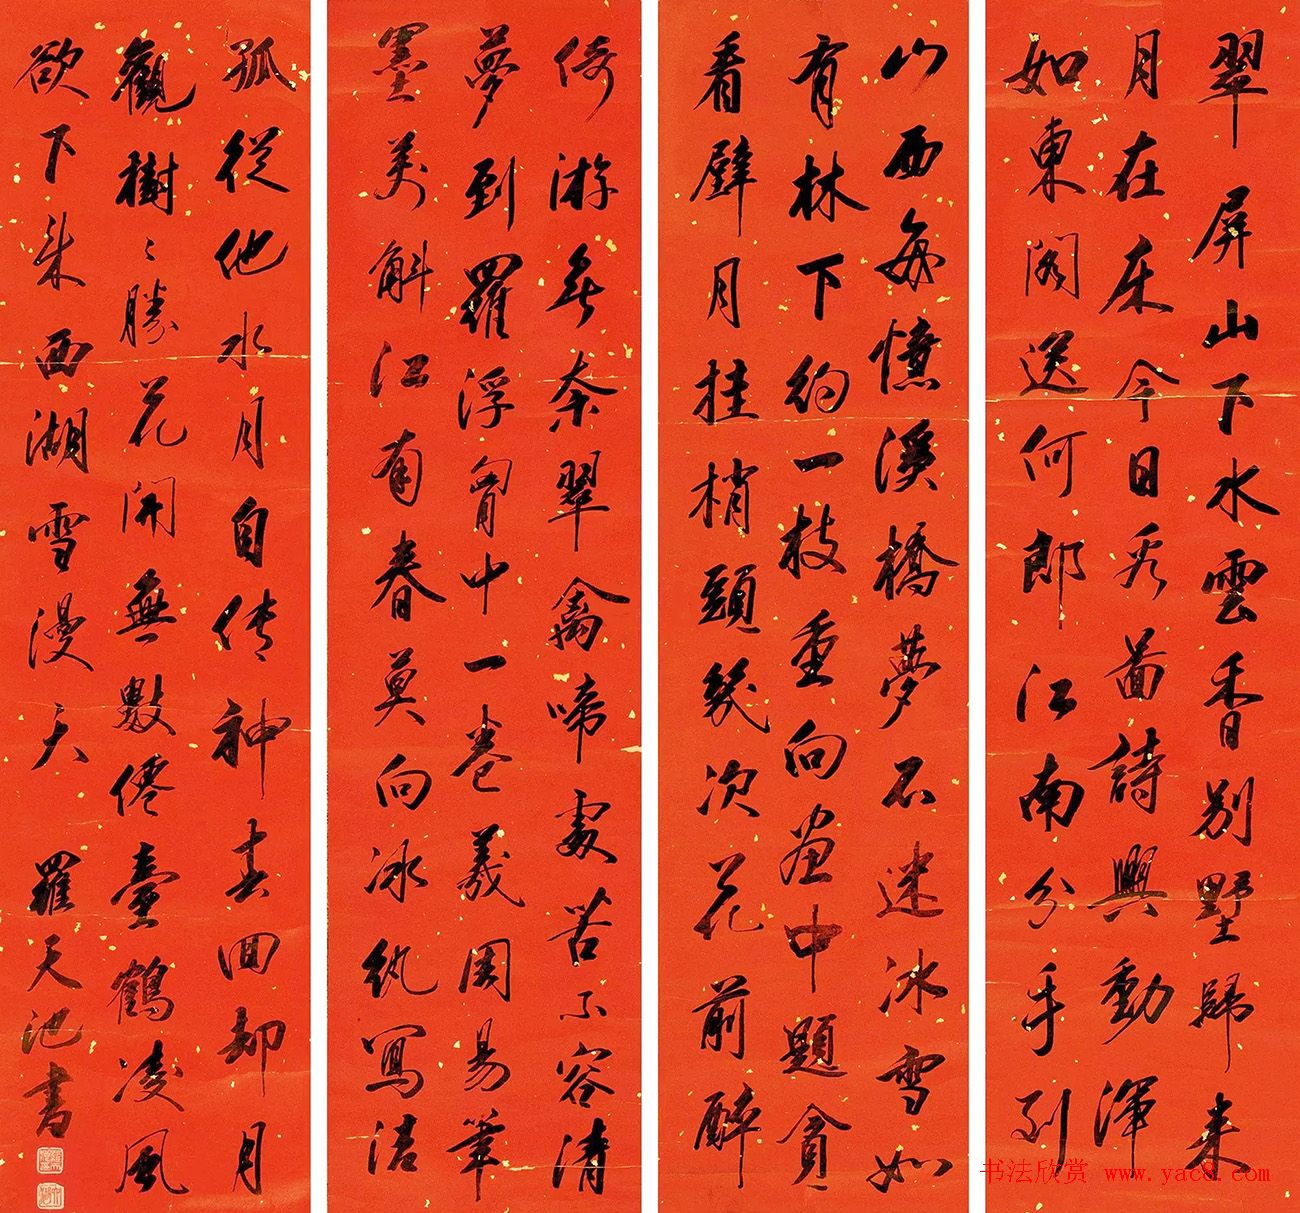 翠屏山下水雲香別墅歸來
月在床秀今日秀葍詩興動渾
如東閣送何郎江南分手到
山西每憶溪橋夢不迷冰雪如
有林下約一枝重向画中題貪
看壁月挂梢頭幾次花前醉
倚游無奈翠禽啼處苦不容清
夢到羅浮胷中一卷羲周易筆
墨萬斛江南春莫向冰紈寫潔
孤從他水月自傳神去回却月
觀樹〻勝花開無數僊臺鶴凌風
欲下來西湖雪漫天 羅天池書
书法欣赏 www.yac8.com